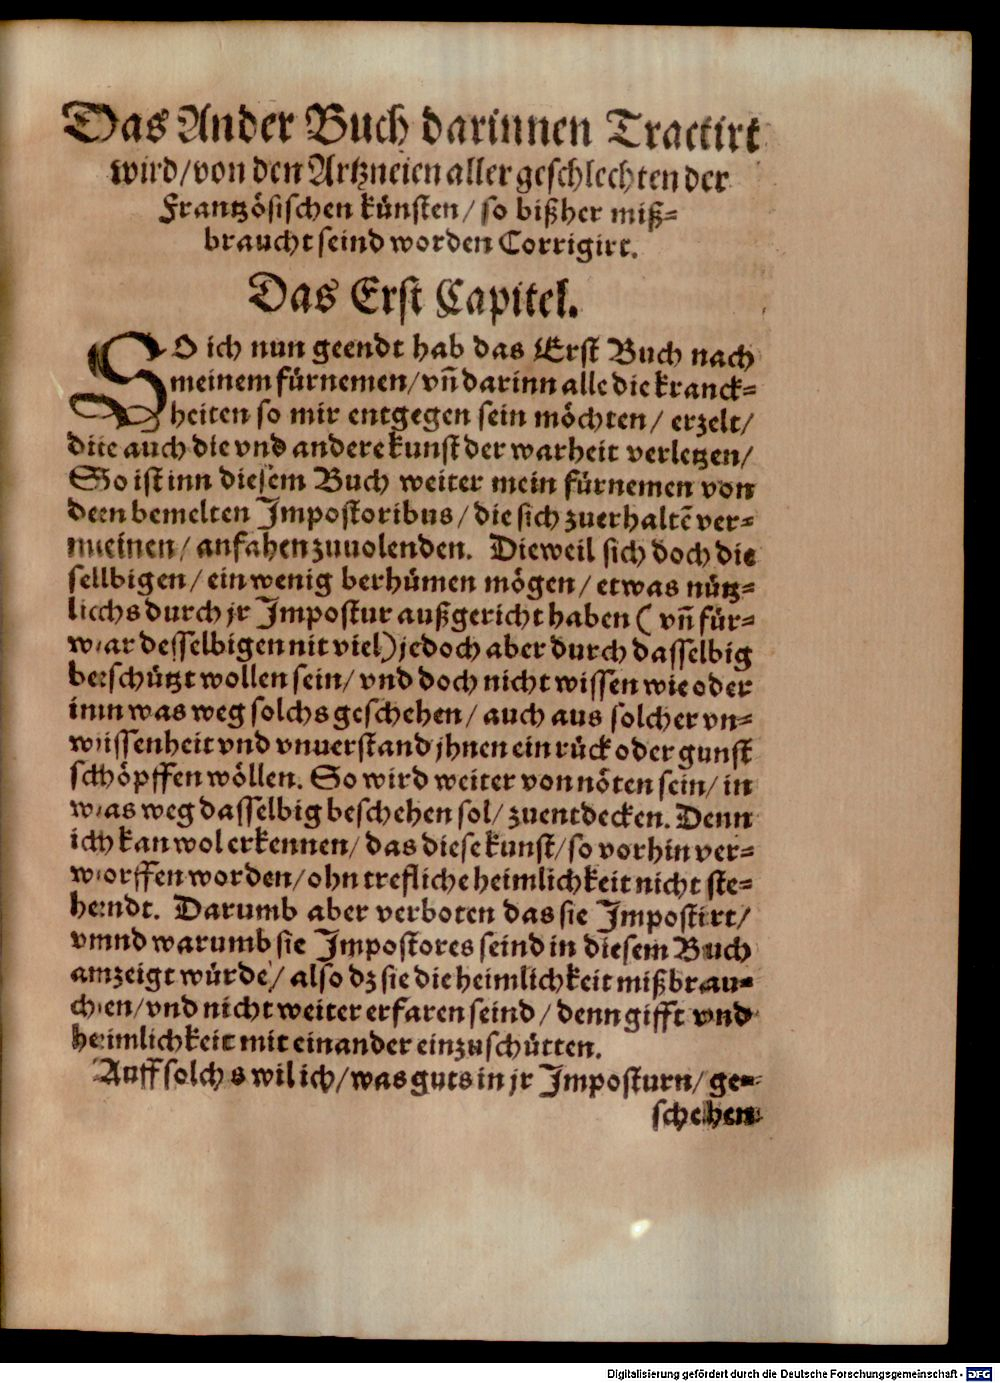 Das Ander Buch darinnen Tractirt
wird/von den Artzneien aller geschlechten der
Frantzösischen künsten/ so bißher miß=
braucht seind worden Corrigirt.
Das Erst Capitel.
SO ich nun geendt hab das Erst Buch nach
meinem fürnemen/vñ darinn alle die kranck=
heiten so mir entgegen sein möchten/ erzelt/
die auch die vnd andere kunst der warheit verletzen/
So ist inn diesem Buch weiter mein fürnemen von
den bemelten Impostoribus/ die sich zuerhaltẽ ver=
meinen/ anfahen zuuolenden. Dieweil sich doch die
selbigen/ ein wenig berhümen mögen/ etwas nütz=
lichs durch jr Impostur außgericht haben ( vñ für=
war desselbigen nit viel) jedoch aber durch dasselbig
beschützt wollen sein/ vnd doch nicht wissen wie oder
inn was weg solchs geschehen/ auch aus solcher vn=
wissenheit vnd vnuerstand jhnen ein rück oder gunst
schöpffen wöllen. So wird weiter von nöten sein/ in
was weg dasselbig beschehen sol/ zuentdecken. Denn
ich kan wol erkennen/ das diese kunst/ so vorhin ver=
worffen worden/ ohn trefliche heimlichkeit nicht ste=
hendt. Darumb aber verboten das sie Impostirt/
vnnd warumb sie Impostores seind in diesem Buch
anzeigt würde/ also dz sie die heimlichkeit mißbrau=
chen/ vnd nicht weiter erfaren seind / denn gifft vnd
heimlichkeit mit einander einzuschütten.
Auff solchs wil ich/ was guts in jr Imposturn/ ge=
schehen
Digitalisierung gefördert durch die Deutsche Forschungsgemeinschaft - DFG